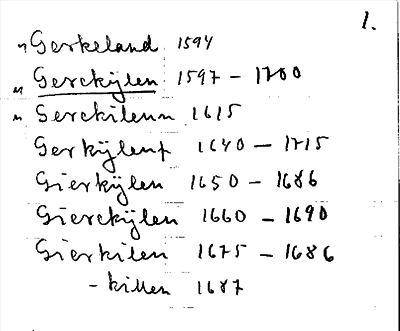 1.
" Gerkeland 1594
" Gerckÿlen 1597 – 1700
" Gerckilenn 1615
Gerkÿlenf 1640 – 1715
Gierkÿlen 1650 – 1686
Gierckÿlen 1660 – 1690
Gierkilen 1675 – 1686
– killen 1687